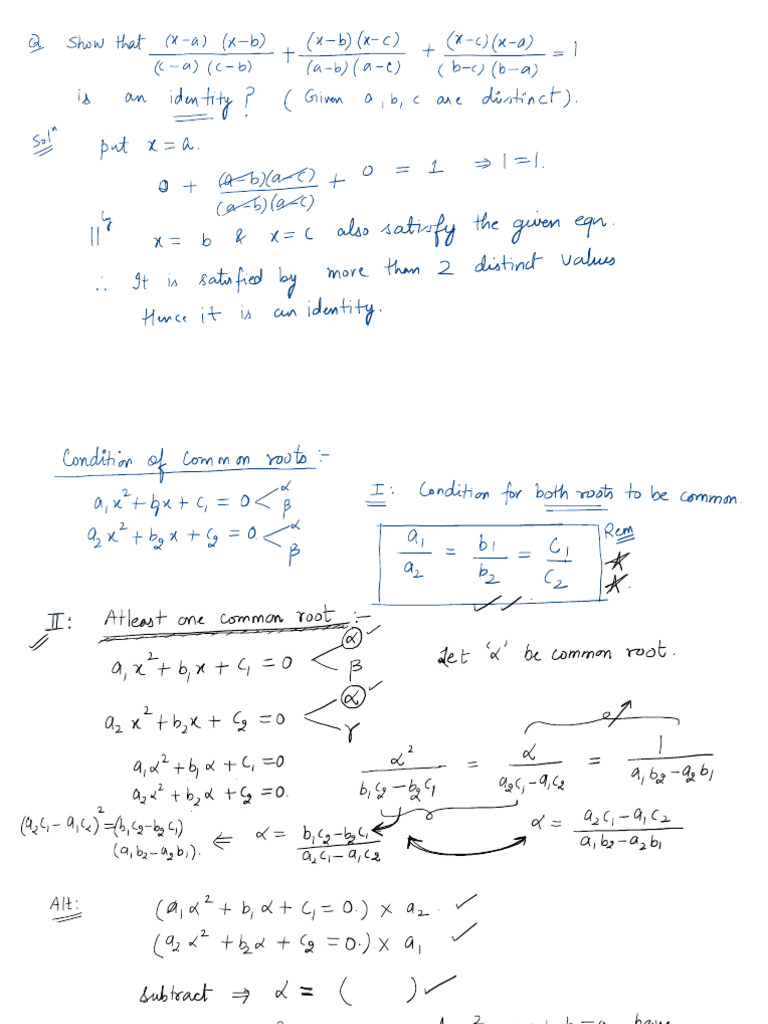 Q Show that (x-a) (x-b) / (c-a) (c-b) + (x-b)(x-c) / (a-b)(a-c) + (x-c)(x-a) / (b-c)(b-a) = 1
is an identity? ( Given a, b, c are distinct).
Solⁿ put x = a.
0 + (a-b)(a-c) / (a-b)(a-c) + 0 = 1 ⇒ 1=1.
||ly x = b & x = c also satisfy the given eqn.
∴ It is satisfied by more than 2 distinct values
Hence it is an identity.
Condition of common roots :-
a₁x² + b₁x + c₁ = 0 < α β
a₂x² + b₂x + c₂ = 0. < α β
I : Condition for both roots to be common.
a₁/a₂ = b₁/b₂ = c₁/c₂ Rem
II : Atleast one common root :-
a₁x² + b₁x + c₁ = 0 < α β
Let 'α' be common root.
a₂x² + b₂x + c₂ = 0 < α γ
a₁α² + b₁α + c₁ = 0
a₂α² + b₂α + c₂ = 0.
α² / b₁c₂ - b₂c₁ = α / a₂c₁ - a₁c₂ = 1 / a₁b₂ - a₂b₁
(a₂c₁ - a₁c₂)² = (b₁c₂ - b₂c₁) (a₁b₂ - a₂b₁). ⇐ α = b₁c₂ - b₂c₁ / a₂c₁ - a₁c₂
α = a₂c₁ - a₁c₂ / a₁b₂ - a₂b₁
Alt: (a₁α² + b₁α + c₁ = 0.) × a₂.
(a₂α² + b₂α + c₂ = 0.) × a₁
Subtract ⇒ α = ( )